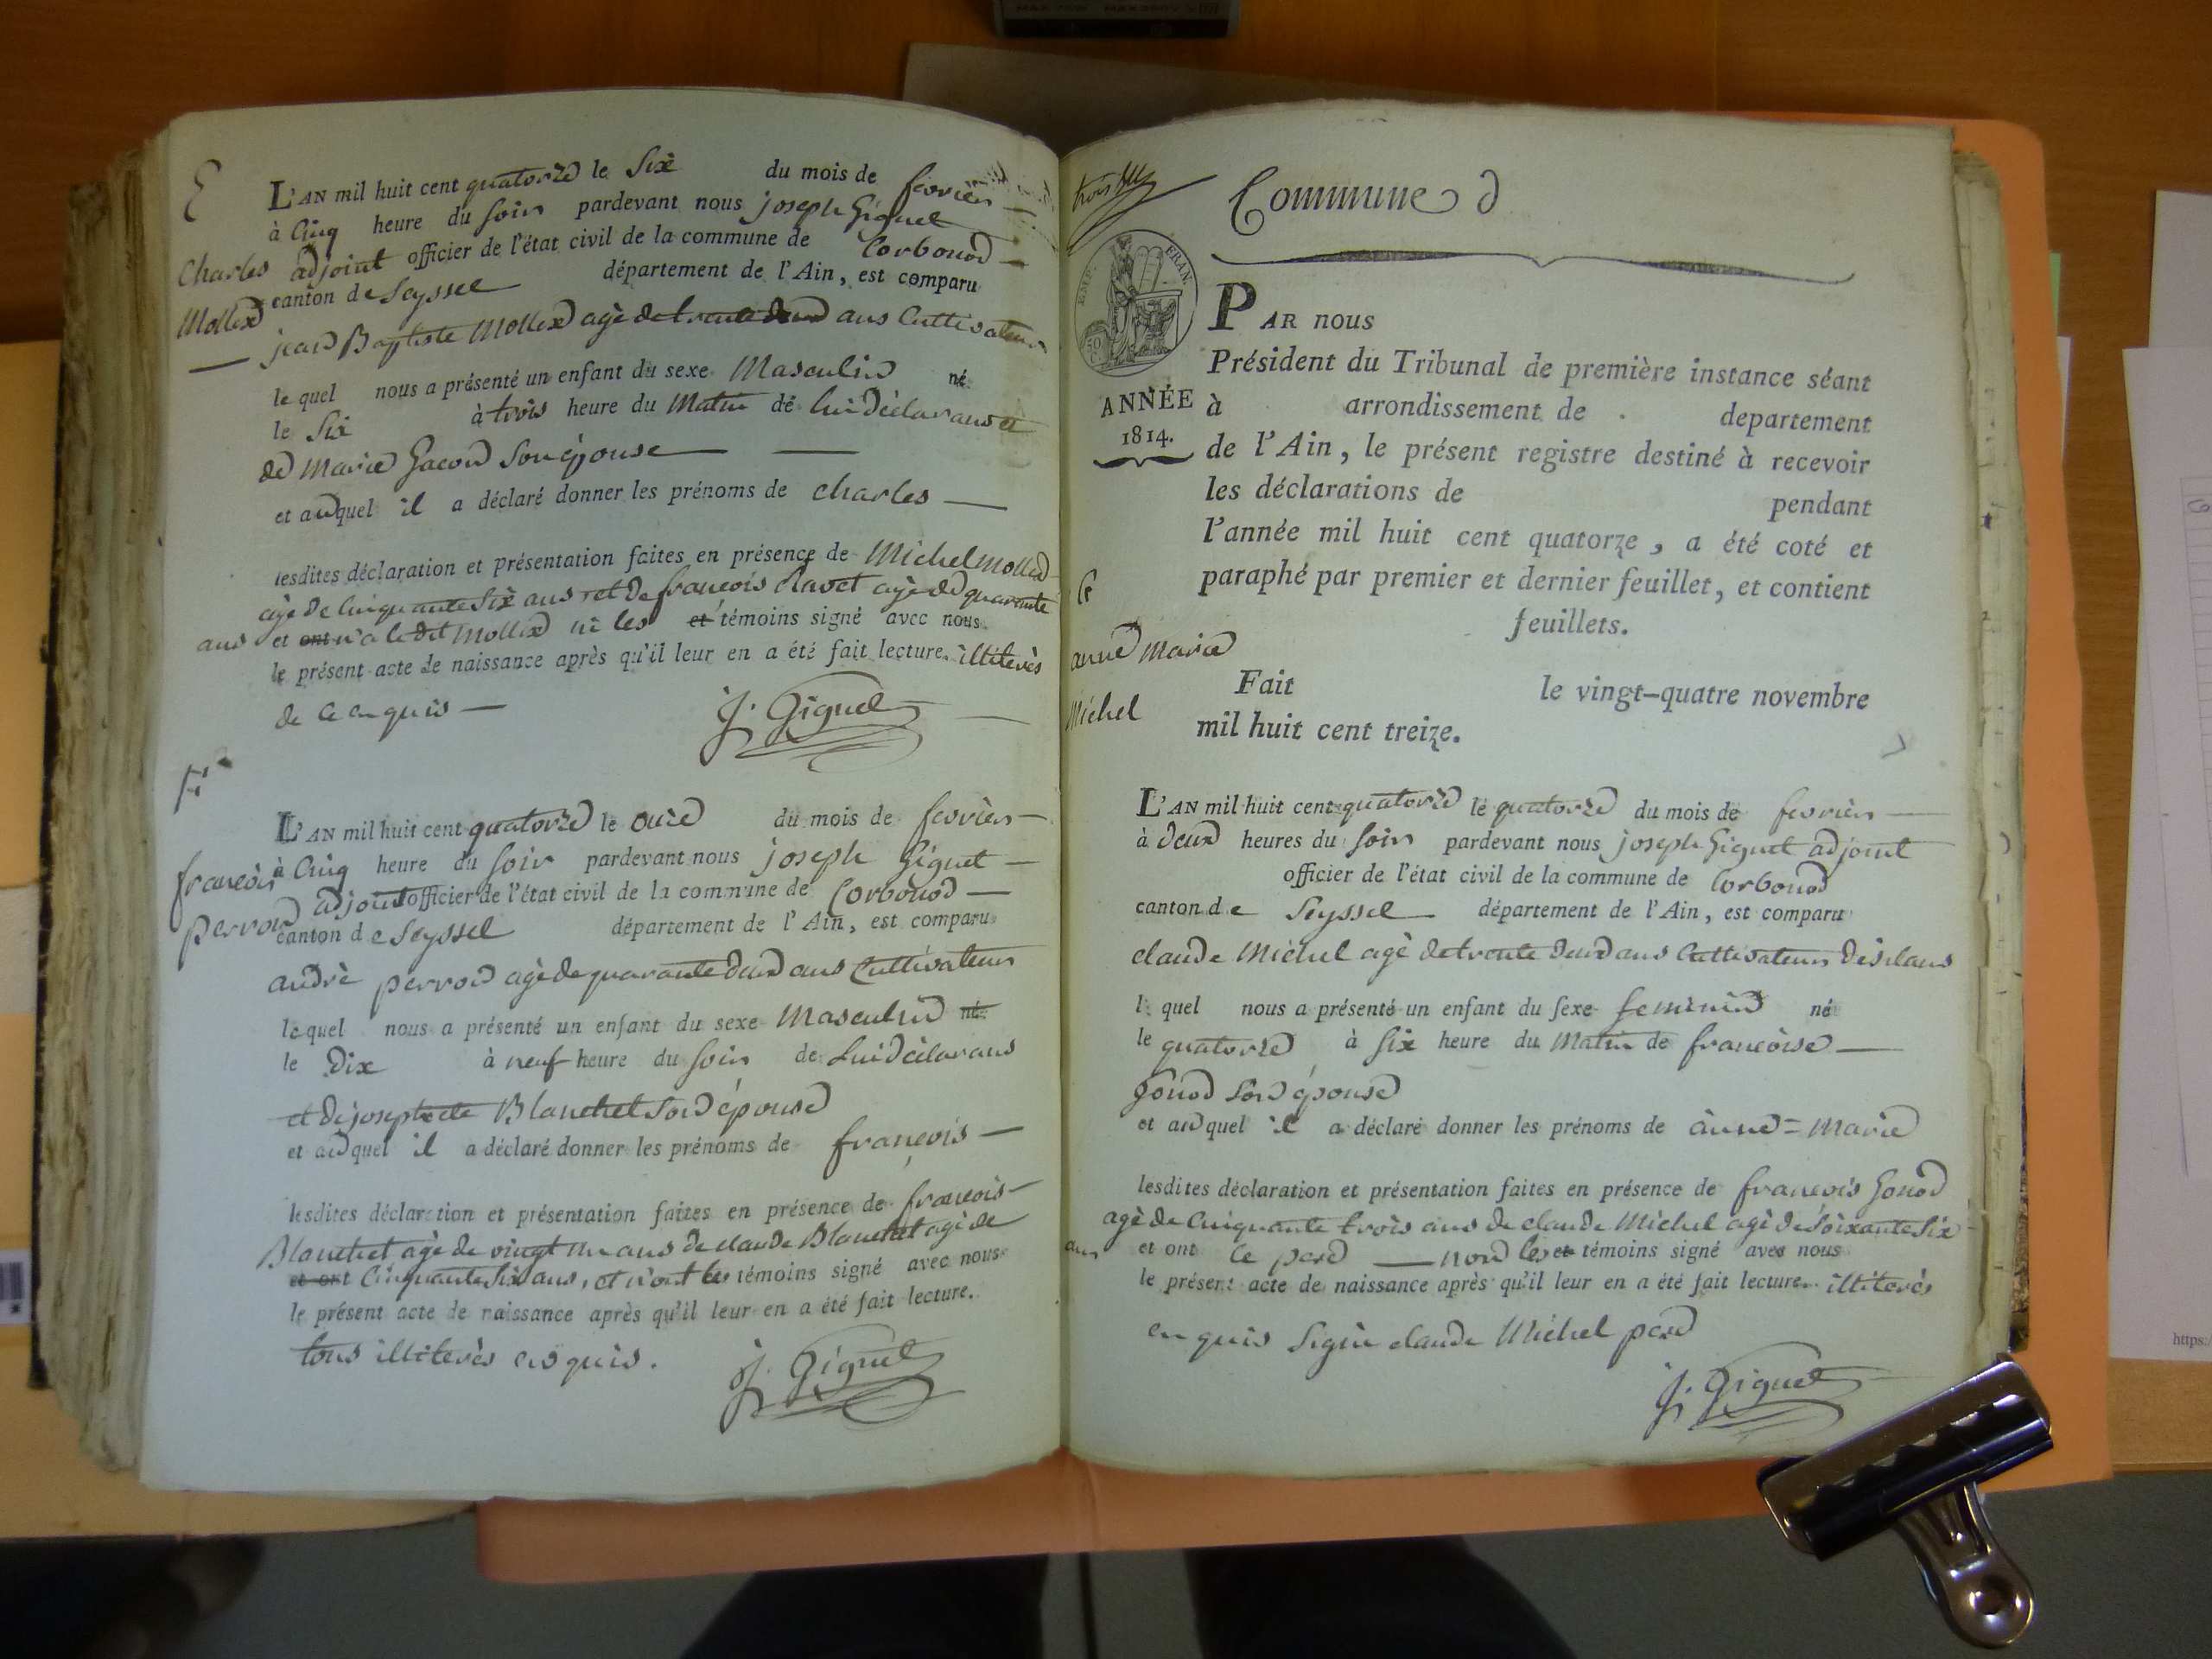 E
L'AN mil huit cent quatorze le Six du mois de fevrier
à Cinq heure du soir pardevant nous joseph Giguet
Charles adjoint officier de l'état civil de la commune de Corbonod
Mollex canton de Seyssel département de l'Ain, est comparu
jean Baptiste Mollex agè de trente deux ans Cultivateur
le quel nous a présenté un enfant du sexe Masculin né
le Six à trois heure du Matin de lui déclarans et
de Marie Gacon Son épouse
et auquel il a déclaré donner les prénoms de charles
lesdites déclaration et présentation faites en présence de Michel Mollex
agè de Cinquante Six ans et de francois clavet agè de quarante
ans et ont n'a le dit Mollex ni les et témoins signé avec nous
le présent acte de naissance après qu'il leur en a été fait lecture. illiterès
de ce en quis
J. Giguet
F
L'AN mil huit cent quatorze le onze du mois de fevrier
françois à Cinq heure du soir pardevant nous joseph Giguet
perrod adjoint officier de l'état civil de la commune de Corbonod
canton de Seyssel département de l'Ain, est comparu
andrè perrod agè de quarante deux ans Cultivateur
le quel nous a présenté un enfant du sexe Masculin né
le Dix à neuf heure du soir de Lui déclarans
et de josephte Blanchet Son épouse
et auquel il a déclaré donner les prénoms de françois
lesdites déclaration et présentation faites en présence de françois
Blanchet agè de vingt un ans de claude Blanchet agè de
et ont Cinquante Six ans, et n'ont les témoins signé avec nous
le présent acte de naissance après qu'il leur en a été fait lecture.
tous illiterès en quis.
J. Giguet
trois
Commune d
EMP. FRAN.
50
ANNÉE
1814.
PAR nous
Président du Tribunal de première instance séant
à arrondissement de departement
de l'Ain, le présent registre destiné à recevoir
les déclarations de pendant
l'année mil huit cent quatorze, a été coté et
paraphé par premier et dernier feuillet, et contient
feuillets.
Fait le vingt-quatre novembre
mil huit cent treize.
G
anne marie
Michel
L'AN mil huit cent quatorze le quatorze du mois de fevrier
à deux heures du soir pardevant nous joseph Giguet adjoint
officier de l'état civil de la commune de Corbonod
canton de Seyssel département de l'Ain, est comparu
claude Michel agè de trente deux ans Cultivateur
l quel nous a présenté un enfant du sexe feminin né
le quatorze à six heure du Matin de françoise
gonod Son épouse
et auquel il a déclaré donner les prénoms de anne=Marie
lesdites déclaration et présentation faites en présence de françois gonod
agè de Cinquante trois ans de claude Michel agè de Soixante Six
ans et ont le pere non les et témoins signé avec nous
le présent acte de naissance après qu'il leur en a été fait lecture. illiterès
en quis Signè claude Michel pere
J. Giguet
https:/